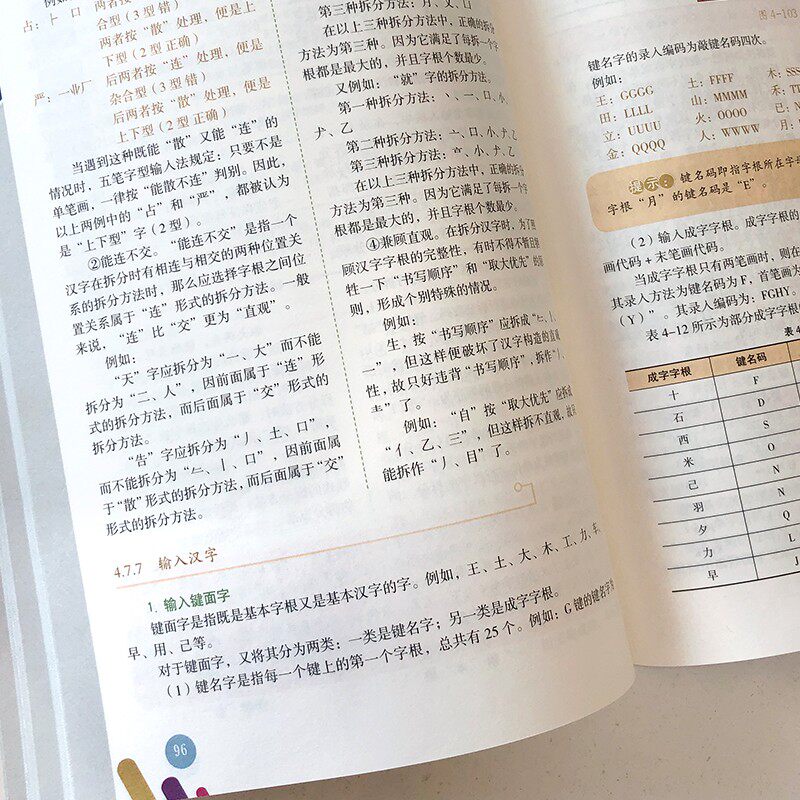 两者按“连”处理，便是杂
占：⺊ 口
合型（3 型错）
两者按“散”处理，便是上
下型（2 型正确）
严：一业厂 后两者按“连”处理，便是
杂合型（3 型错）
后两者按“散”处理，便是
上下型（2 型正确）
当遇到这种既能“散”又能“连”的
情况时，五笔字型输入法规定：只要不是
单笔画，一律按“能散不连”判别。因此，
以上两例中的“占”和“严”，都被认为
是“上下型”字（2 型）。
②能连不交。“能连不交”是指一个
汉字在拆分时有相连与相交的两种位置关
系的拆分方法时，那么应选择字根之间位
置关系属于“连”形式的拆分方法。一般
来说，“连”比“交”更为“直观”。
例如：
“天”字应拆分为“一、大”而不能
拆分为“二、人”，因前面属于“连”形
式的拆分方法，而后面属于“交”形式的
拆分方法。
“告”字应拆分为“丿、土、口”，
而不能拆分为“𠂉、丨、口”，因前面属
于“散”形式的拆分方法，而后面属于“交”
形式的拆分方法。
第三种拆分方法：月、又、口
在以上三种拆分方法中，正确的拆分
方法为第三种。因为它满足了每拆一个字
根都是最大的，并且字根个数最少。
又例如：“就”字的拆分方法。
第一种拆分方法：丶、一、口、小、
𠂇、乙
第二种拆分方法：亠、口、小、𠂇、乙
第三种拆分方法：𠅃、小、𠂇、乙
在以上三种拆分方法中，正确的拆分
方法为第三种。因为它满足了每拆一个字
根都是最大的，并且字根个数最少。
④兼顾直观。在拆分汉字时，为了照
顾汉字字根的完整性，有时不得不暂且牺
牲一下“书写顺序”和“取大优先”的原
则，形成个别特殊的情况。
例如：
生，按“书写顺序”应拆成“𠂉、丨、
一”，但这样便破坏了汉字构造的直观
性，故只好违背“书写顺序”，拆作“丿、
龶”了。
例如：“自”按“取大优先”应拆成
“亻、乙、三”，但这样拆不直观，故只
能拆作“丿、目”了。
4.7.7 输入汉字
1. 输入键面字
键面字是指既是基本字根又是基本汉字的字。例如，王、土、大、木、工、力、车、
早、用、己等。
对于键面字，又将其分为两类：一类是键名字；另一类是成字字根。
（1）键名字是指每一个键上的第一个字根，总共有 25 个。例如：G 键的键名字
96
图 4-103
键名字的录入编码为敲键名码四次。
例如：
王：GGGG 土：FFFF 木：SSS
田：LLLL 山：MMMM 禾：
立：UUUU 火：OOOO 已：
金：QQQQ 人：WWWW 月：
提示：键名码即指字根所在字
字根“月”的键名码是“E”。
（2）输入成字字根。成字字根的
画代码 + 末笔画代码。
当成字字根只有两笔画时，则在
其录入方法为键名码为 F，首笔画为
（Y）”。其录入编码为：FGHY。
表 4-12 所示为部分成字字根
表 4
成字字根 键名码
十 F
石 D
西 S
米 O
己 N
羽 N
夕 Q
力 L
早 J